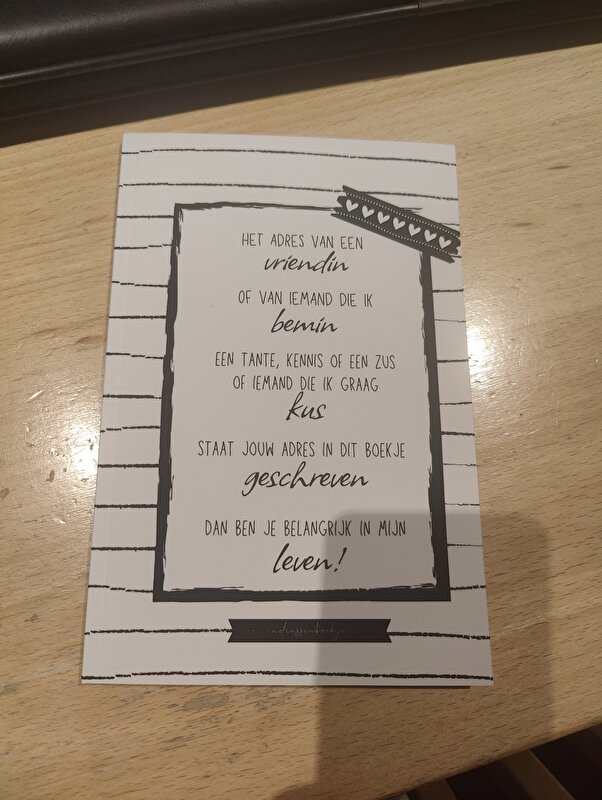 HET ADRES VAN EEN
vriendin
OF VAN IEMAND DIE IK
bemin
EEN TANTE, KENNIS OF EEN ZUS
OF IEMAND DIE IK GRAAG
kus
STAAT JOUW ADRES IN DIT BOEKJE
geschreven
DAN BEN JE BELANGRIJK IN MIJN
leven!
adressenboekje